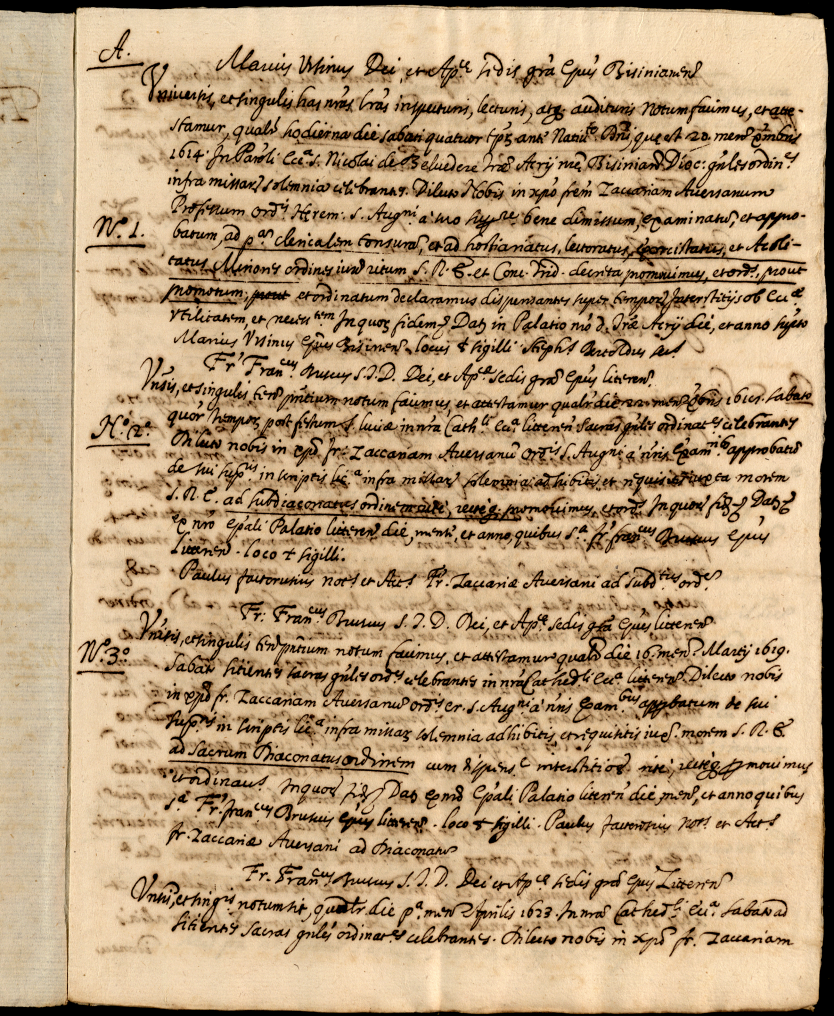 A.
Marius Ursinus Dei, et Ap.ce sedis gra Epus Bisinianen
Universis, et singulis has nras lras inspecturis, lecturis, atq; audituris notum facimus, et atte-
stamur, qualr hodierna die sabati quatuor tpz ante Natiu.te Dni, que est 20 mens xmbris
1614. In Paroli Ecc.a S. Nicolai de Belvedere Acrij Bisinian Dioc: gnles ordin.s
infra missar solemnia celebrantes. Dilecto Nobis in xpo frem Zaccariam Aversanum
Professum ord.s Herem. S. Augni a suo bene dimissum, examinatu, et appro-
Nº. 1.
batum, ad p.am clericalem tonsura, et ad hostiariatus, lectoratus, exorcistatus, et Acoli-
tatus Minores ordines iuxa ritum S. R. E. et Conc. Trid. decreta promovimus, et ord.s, prout
promotum, et ordinatum declaramus dispensantes super tempor Interstitijs ob Ecc.æ
utilitatem, et necess.tem In quor fidem Dat in Palatio nro Acrij die, et anno supto
Marius Ursinus Epus Bisinien. locus + sigilli
Fr. Fran.cus Bruscus S. I. D. Dei, et Ap.ce sedis gra Epus literen.
Unsis, et singulis notum facimus, et attestamur qualr die 1615. sabato
quor tempor post festum S. luciæ in nra Cath.li Ecc.a litteren sacras gnles ordinat.es celebrantes
Nº. 2º
Dilecto nobis in xpo fr. Zaccariam Aversanu ord.is S. Augni a nris Exam.bus approbatu
de sui in scriptis lic.a infra missar solemnia adhibitis et requisitis iuxta morem
S. R. E. ad subdiaconatus ordinem rite, recteq; promovimus, et ord. In quor fid Dat
ex nro Epali Palatio litteren die, mense, et anno, quibus s.a fr. fran.cus Bruscus Epus
litteren. loco + sigilli.
Paulus factorusius not.s et Act.s Fr. Zaccariæ Aversani ad subd.tus ord.
Fr. Fran.cus Bruscus S. I. D. Dei, et Ap.ce sedis gra Epus litteren
Nº. 3º
Unsis, et singulis notum facimus, et attestamur qualr die 16. mens Martij 1619.
Sabati sitientes sacras gnles ord.s celebrantes in nra Cathed.li Ecc.a litteren Dilecto nobis
in xpo fr. Zaccariam Aversanu ord.s er. S. Augni a nris Exam.bus approbatum de sui
in scriptis lic.a infra missar solemnia adhibitis, et requisitis morem S. R. E.
ad Sacrum Diaconatus ordinem cum dispens.e interstitior rite, recteq; promovimus
et ordinavi. In quor fid Dat ex nro Epali Palatio literen die, mens, et anno quibus
s.a Fr. fran.cus Bruscus Epus litteren. loco + sigilli. Paulus factorusius Not.s et Act.s
fr. Zaccariæ Aversani ad Diaconatus
Fr. Fran.cus Bruscus S. I. D. Dei et Ap.ce sedis gra Epus Litteren
Unsis, et singis notum sit, qualr die p.a mens Aprilis 1623. In nra Cathed.li Ecc.a Sabato ad
sitientes sacras gnles ordinat.es celebrantes. Dilecto nobis in xpo fr. Zaccariam